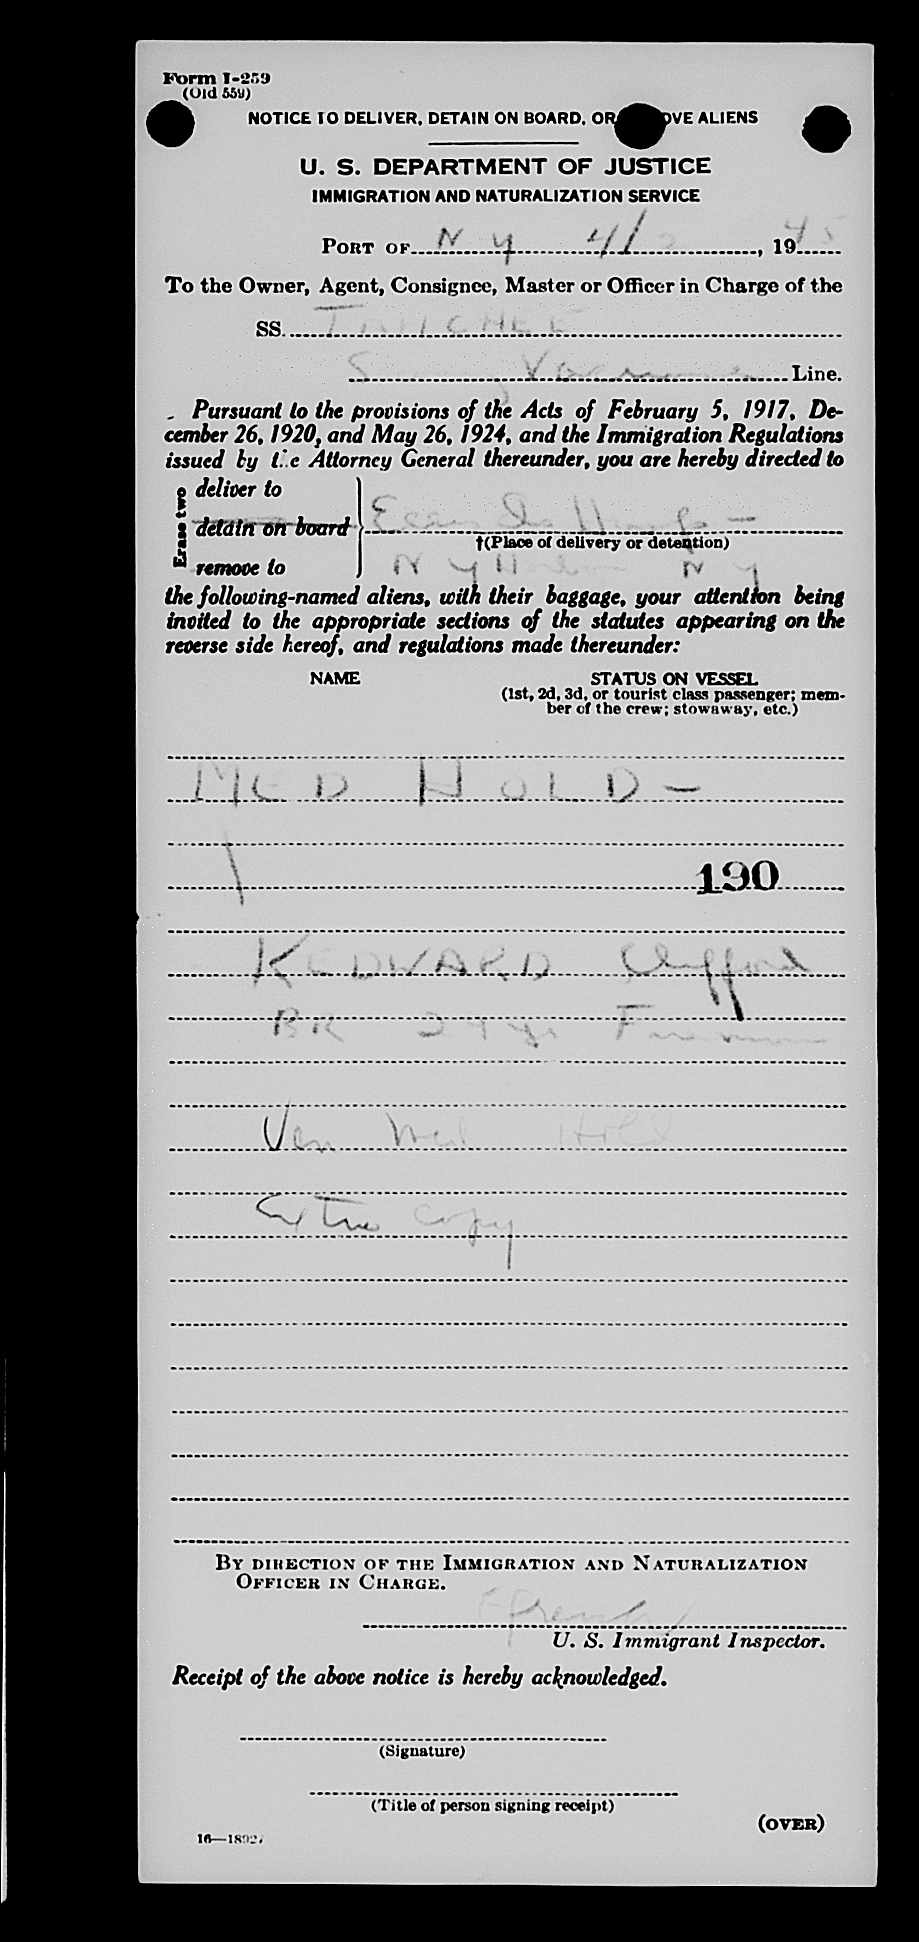 Form I-259
(Old 559)
NOTICE TO DELIVER, DETAIN ON BOARD, OR OVE ALIENS
U. S. DEPARTMENT OF JUSTICE
IMMIGRATION AND NATURALIZATION SERVICE
PORT OF N Y 4/2, 1945
To the Owner, Agent, Consignee, Master or Officer in Charge of the
SS.
Line.
Pursuant to the provisions of the Acts of February 5, 1917, De-
cember 26, 1920, and May 26, 1924, and the Immigration Regulations
issued by the Attorney General thereunder, you are hereby directed to
Erase two
deliver to
detain on board
†(Place of delivery or detention)
remove to N Y N Y
the following-named aliens, with their baggage, your attention being
invited to the appropriate sections of the statutes appearing on the
reverse side hereof, and regulations made thereunder:
NAME STATUS ON VESSEL
(1st, 2d, 3d, or tourist class passenger; mem-
ber of the crew; stowaway, etc.)
MED HOLD -
1
190
KEDWARD Clifford
BR 29 yrs Fireman
Ven Med Hold
Extra Copy
BY DIRECTION OF THE IMMIGRATION AND NATURALIZATION
OFFICER IN CHARGE.
U. S. Immigrant Inspector.
Receipt of the above notice is hereby acknowledged.
(Signature)
(Title of person signing receipt)
(OVER)
16—18927